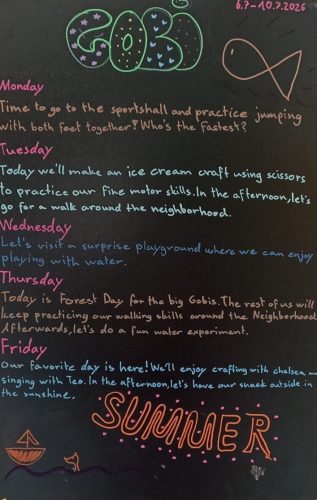 GOBI
6.7-10.7.2026
Monday
Time to go to the sportshall and practice jumping
with both feet together! Who's the fastest?
Tuesday
Today we'll make an ice cream craft using scissors
to practice our fine motor skills. In the afternoon, let's
go for a walk around the neighborhood.
Wednesday
Let's visit a surprise playground where we can enjoy
playing with water.
Thursday
Today is Forest Day for the big Gobis. The rest of us will
keep practicing our walking skills around the Neighborhood
Afterwards, let's do a fun water experiment.
Friday
Our favorite day is here! We'll enjoy crafting with chelsea
singing with Teo. In the afternoon, let's have our snack outside in
the sunshine.
SUMMER